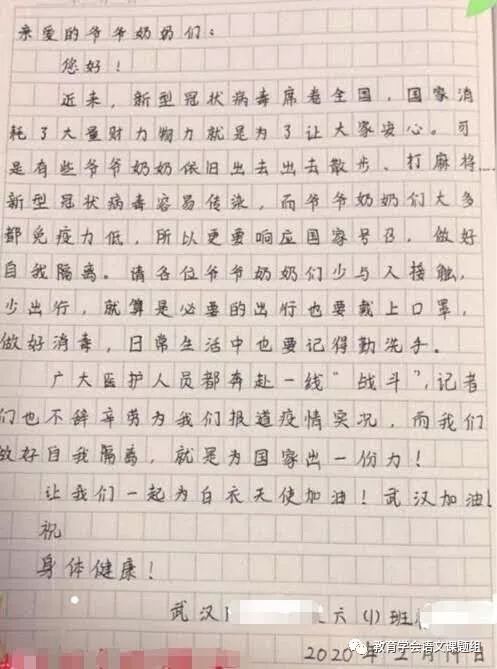 亲爱的爷爷奶奶们：
您好！
近来，新型冠状病毒席卷全国，国家消
耗了大量财力物力就是为了让大家安心。可
是有些爷爷奶奶依旧出去出去散步、打麻将……
新型冠状病毒容易传染，而爷爷奶奶们大多
都免疫力低，所以更要响应国家号召，做好
自我隔离。请各位爷爷奶奶们少与人接触，
少出行，就算是必要的出行也要戴上口罩，
做好消毒，日常生活中也要记得勤洗手。
广大医护人员都奔赴一线“战斗”，记者
们也不辞辛劳为我们报道疫情实况，而我们
做好自我隔离，就是为国家出一份力！
让我们一起为白衣天使加油！武汉加油！
祝
身体健康！
武汉 六（1）班
教育学会语文课题组
2020年2月